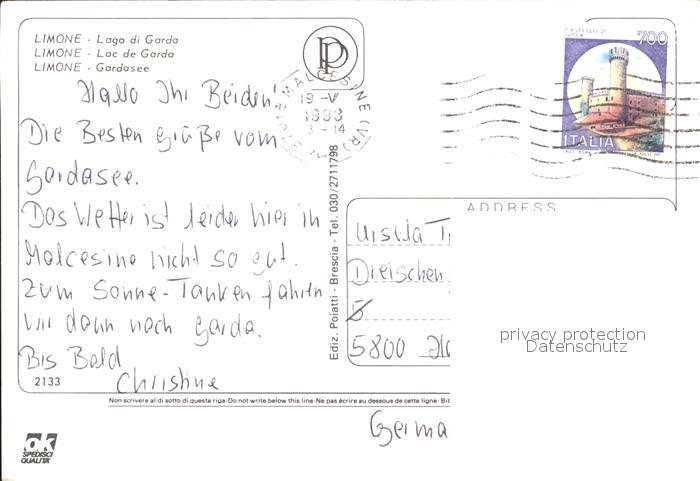 LIMONE - Lago di Garda
LIMONE - Lac de Garda
LIMONE - Gardasee
Hallo Ihr Beiden!
Die Besten Grüße vom
Gardasee.
Das Wetter ist leider hier in
Malcesine nicht so gut.
Zum Sonne-Tanken fahren
wir dann nach Garda.
Bis Bald
Christine
2133
OK
SPEDISCI
QUALITÀ
P
MALCESINE (VR)
19-V
1993
Ediz. Poiatti - Brescia - Tel. 030/2711798
CASTELLO DI
IVREA
700
ITALIA
ADDRESS
Ursula
Dreischen
5800
Germa
Non scrivere al di sotto di questa riga-Do not write below this line-Ne pas écrire au dessous de cette ligne- Bit
privacy protection
Datenschutz